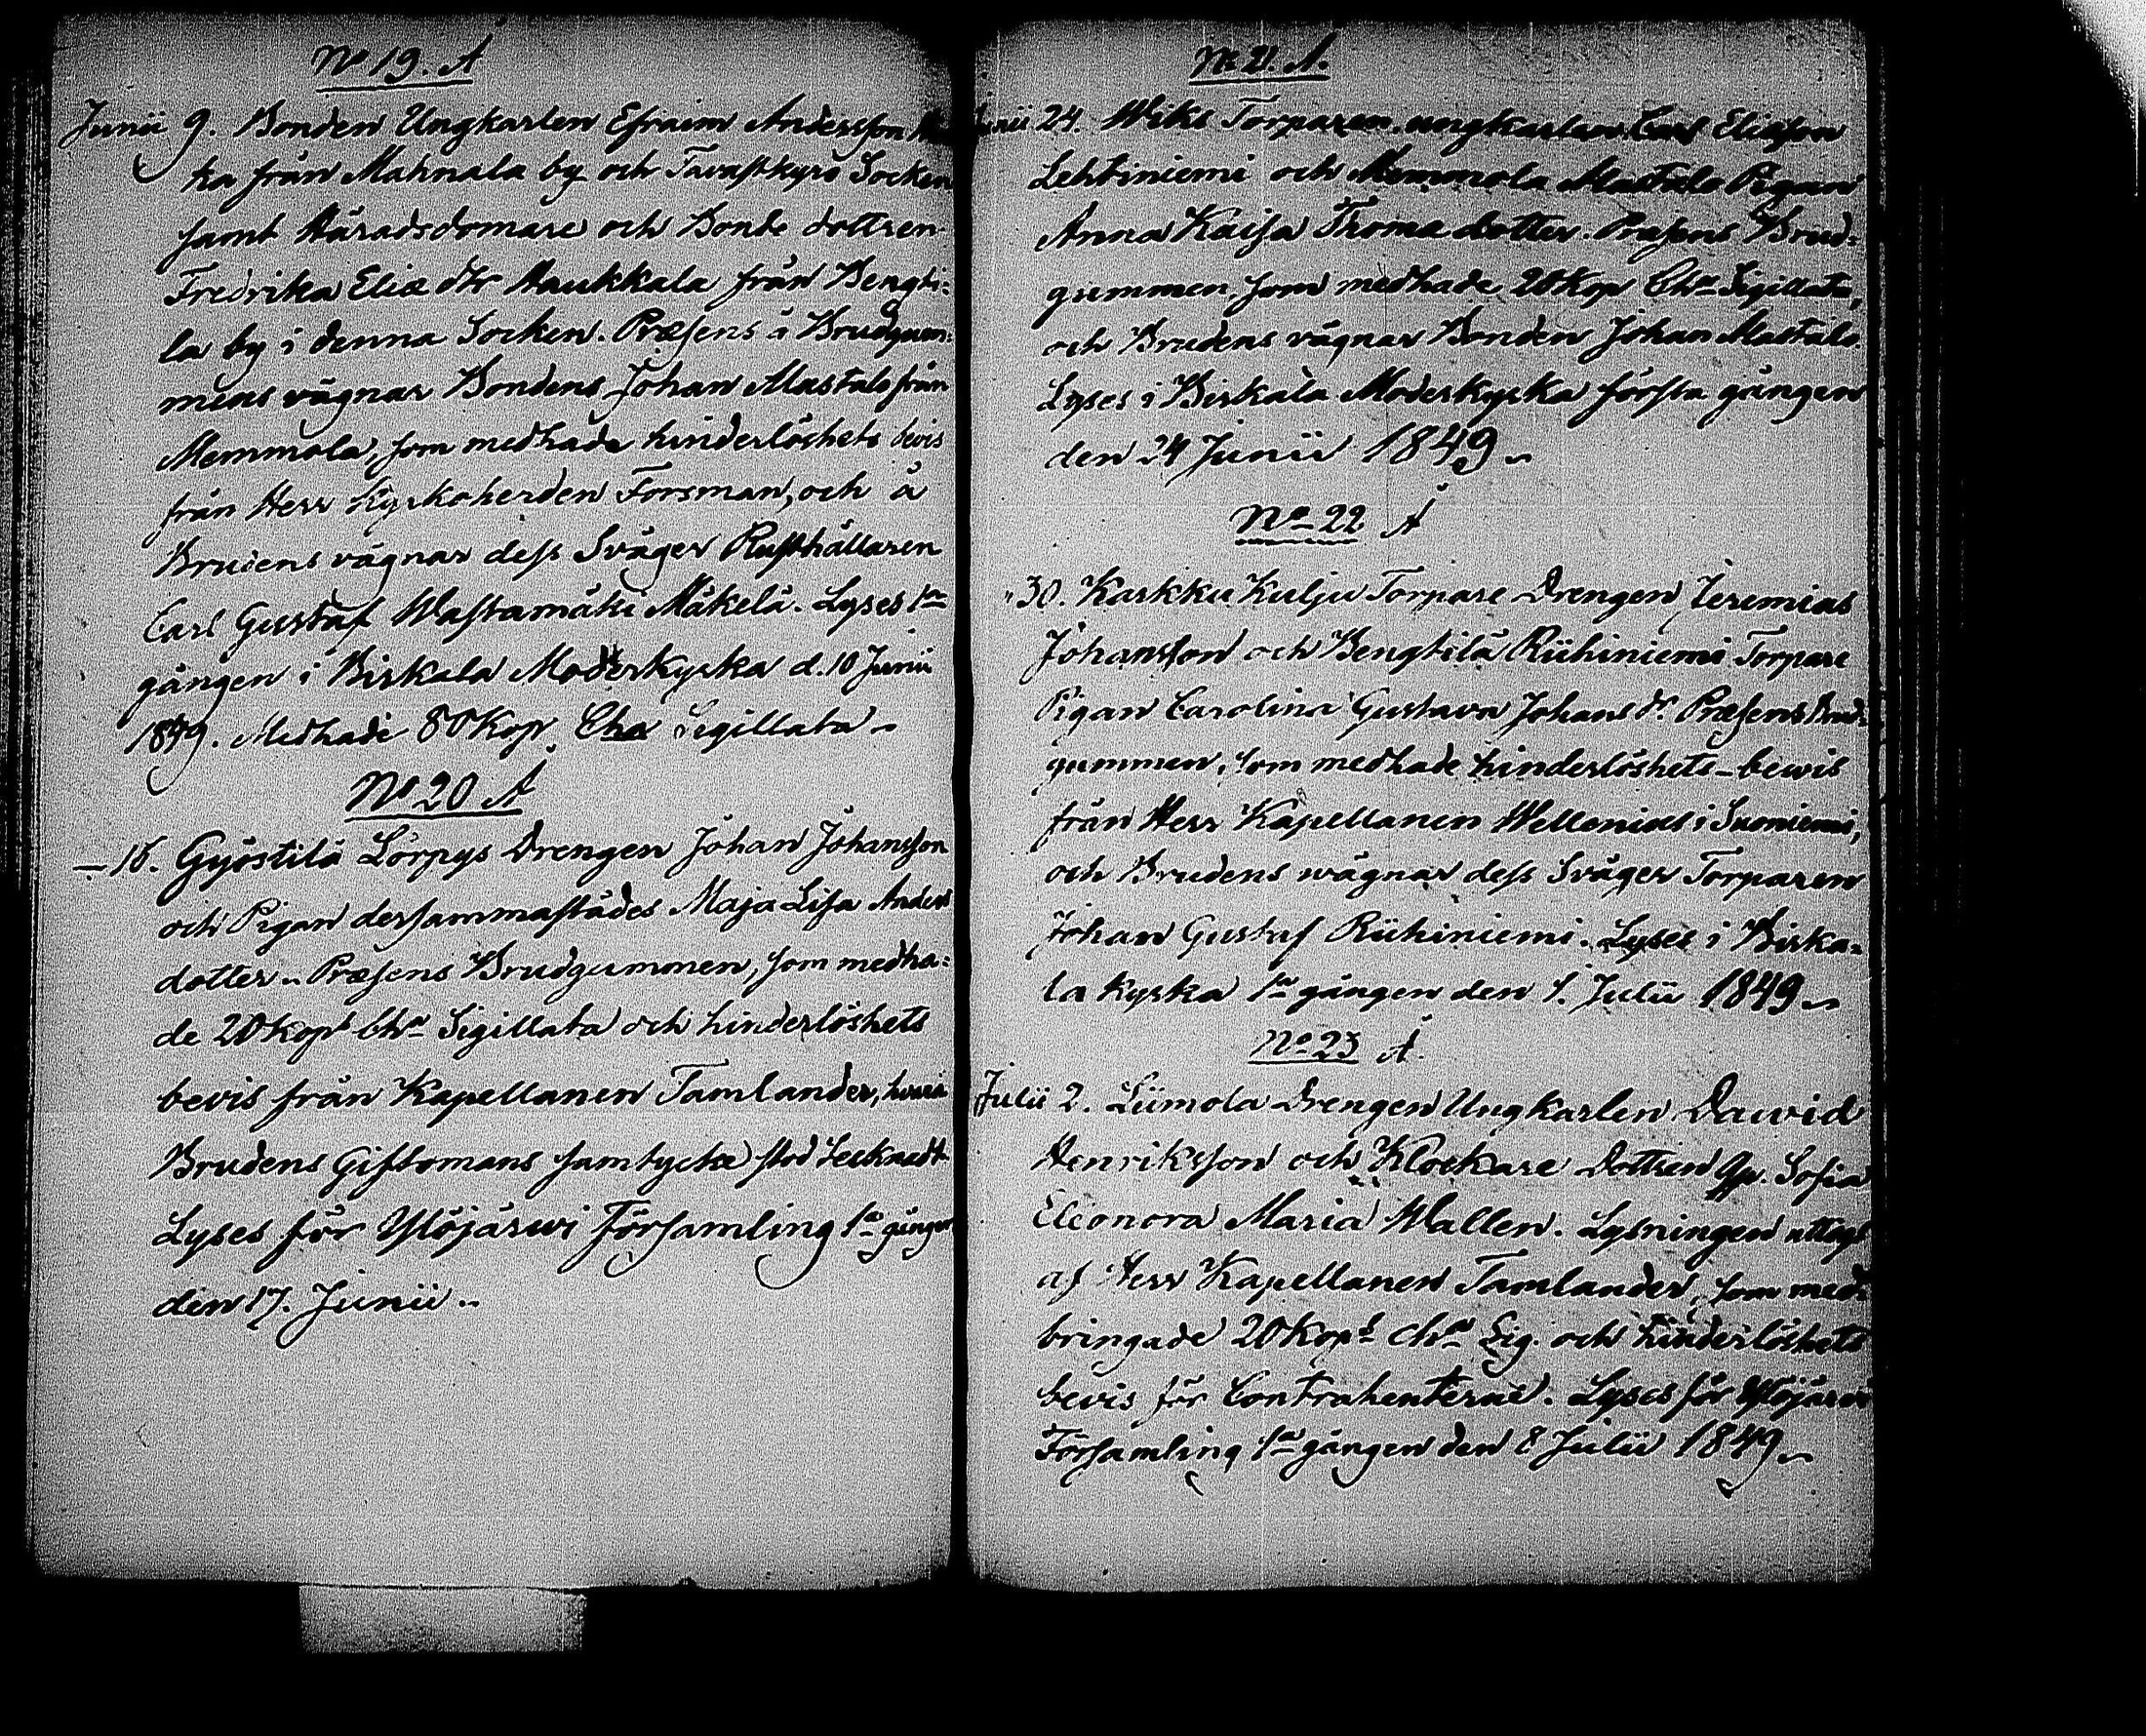 No 19. A
Junii 9. Bonden Ungkarlen Efraim Andersson
ka från Mahnala by och Tavastkyrö Socken
samt Häradsdomare och Bonde dottren
Fredrika Eliæ dtr Haukkala från Bengti-
la by i denna Socken. Præsens å Brudgum-
mens vägnar Bondens Johan Mastalo från
Memmola, som medhade hinderlöshets bevis
från Herr Kyrkoherden Forsman, och å
Brudens vägnar dess Svåger Rusthållaren
Carl Gustaf Wastamäki Mäkelä. Lyses 1sta
gången i Birkala Moderkyrka d. 10 Junii
1849. Medhade 80 Kop Cha Sigillata
No 20 A
— 16. Gyöstilä Lörpys Drengen Johan Johansson
och Pigan dersammastädes Maja Lisa Anders
dotter. Præsens Brudgummen, som medha-
de 20 Kop Cha Sigillata och hinderlöshets
bevis från Kapellanen Tamlander,
Brudens Giftomans samtycke stod tecknadt
Lyses för Ylöjärwi Församling 1a gången
den 17. Junii
No 21. A.
Junii 24. Wiks Torparen, ungkarlen Carl Eliasson
Lehtiniemi och Memmola Mastalo Pigan
Anna Kaisa Thoma dotter. Præsens Brud-
gummen, som medhade 20 Kop Cha Sigillata,
och Brudens vägnar Bonden Johan Mastalo
Lyses i Birkala Moderkyrka första gången
den 24 Junii 1849
No 22 A
" 30. Karkku Kulju Torpare Drengen Jeremias
Johansson och Bengtilä Riihiniemi Torpare
Pigan Carolina Gustava Johans dr. Præsens Brud-
gummen, som medhade hinderlöshets-bewis
från Herr Kapellanen Wellenius i Suoniemi,
och Brudens wägnar dess Svåger Torparen
Johan Gustaf Riihiniemi. Lyses i Birka-
la kyrka 1a gången den 1. Julii 1849
No 23 A.
Julii 2. Liimola Drengen Ungkarlen Dawid
Henriksson och Klockare Dottren Sofia
Eleonora Maria Wallen. Lysningen uttogs
af Herr Kapellanen Tamlander, som med-
bringade 20 Kops Cha Sig. och hinderlöshets
bevis för Contrahenterne. Lyses för Ylöjärwi
Församling 1a gången den 8 Julii 1849